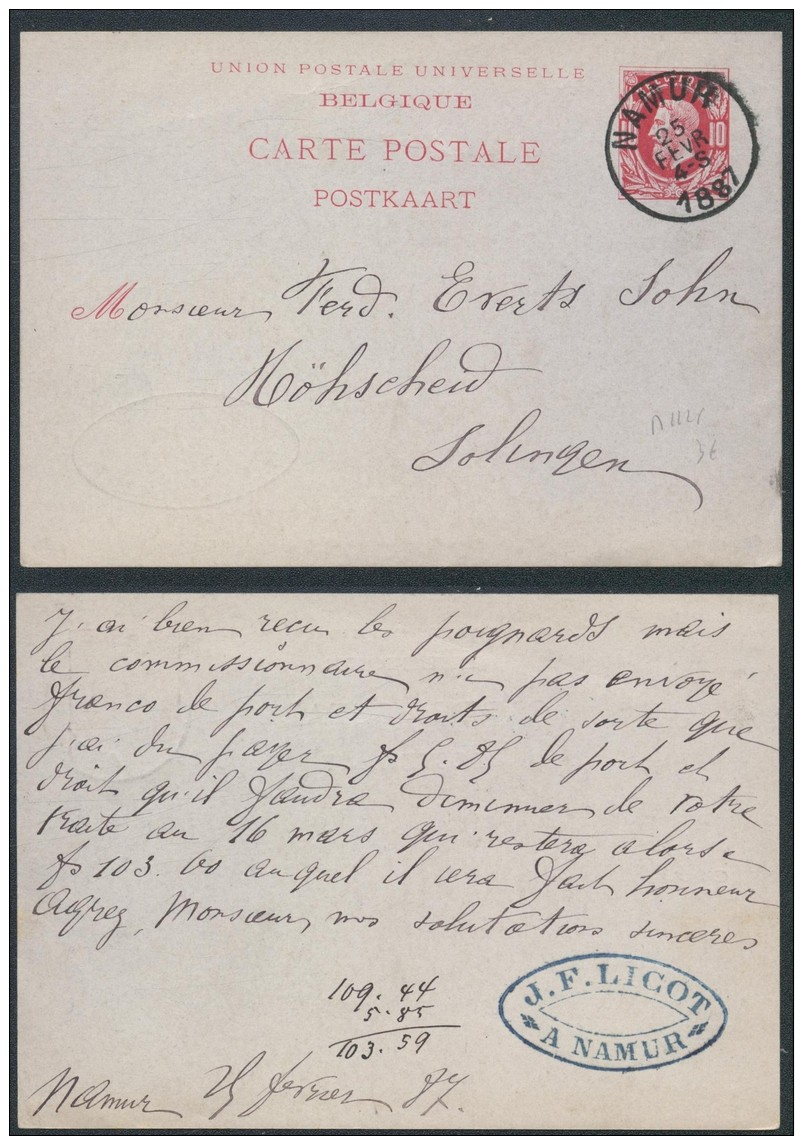 UNION POSTALE UNIVERSELLE
BELGIQUE
CARTE POSTALE
POSTKAART
BELGIQUE
10
NAMUR
25
FEVR
4-S
1887
Monsieur Ferd. Everts Sohn
Höhscheid
Solingen
3€
J'ai bien recu les poignards mais
le commissionnaire n'a pas envoyé
franco de port et droits de sorte que
j'ai du payer fs 5.85 de port et
droit qu'il faudra diminuer de votre
traite au 16 mars qui restera alors a
fs 103.60 auquel il sera fait honneur
Agreez, Monsieur, nos salutations sinceres
109.44
5.85
103.59
J.F. LICOT
A NAMUR
Namur 25 fevrier 87.